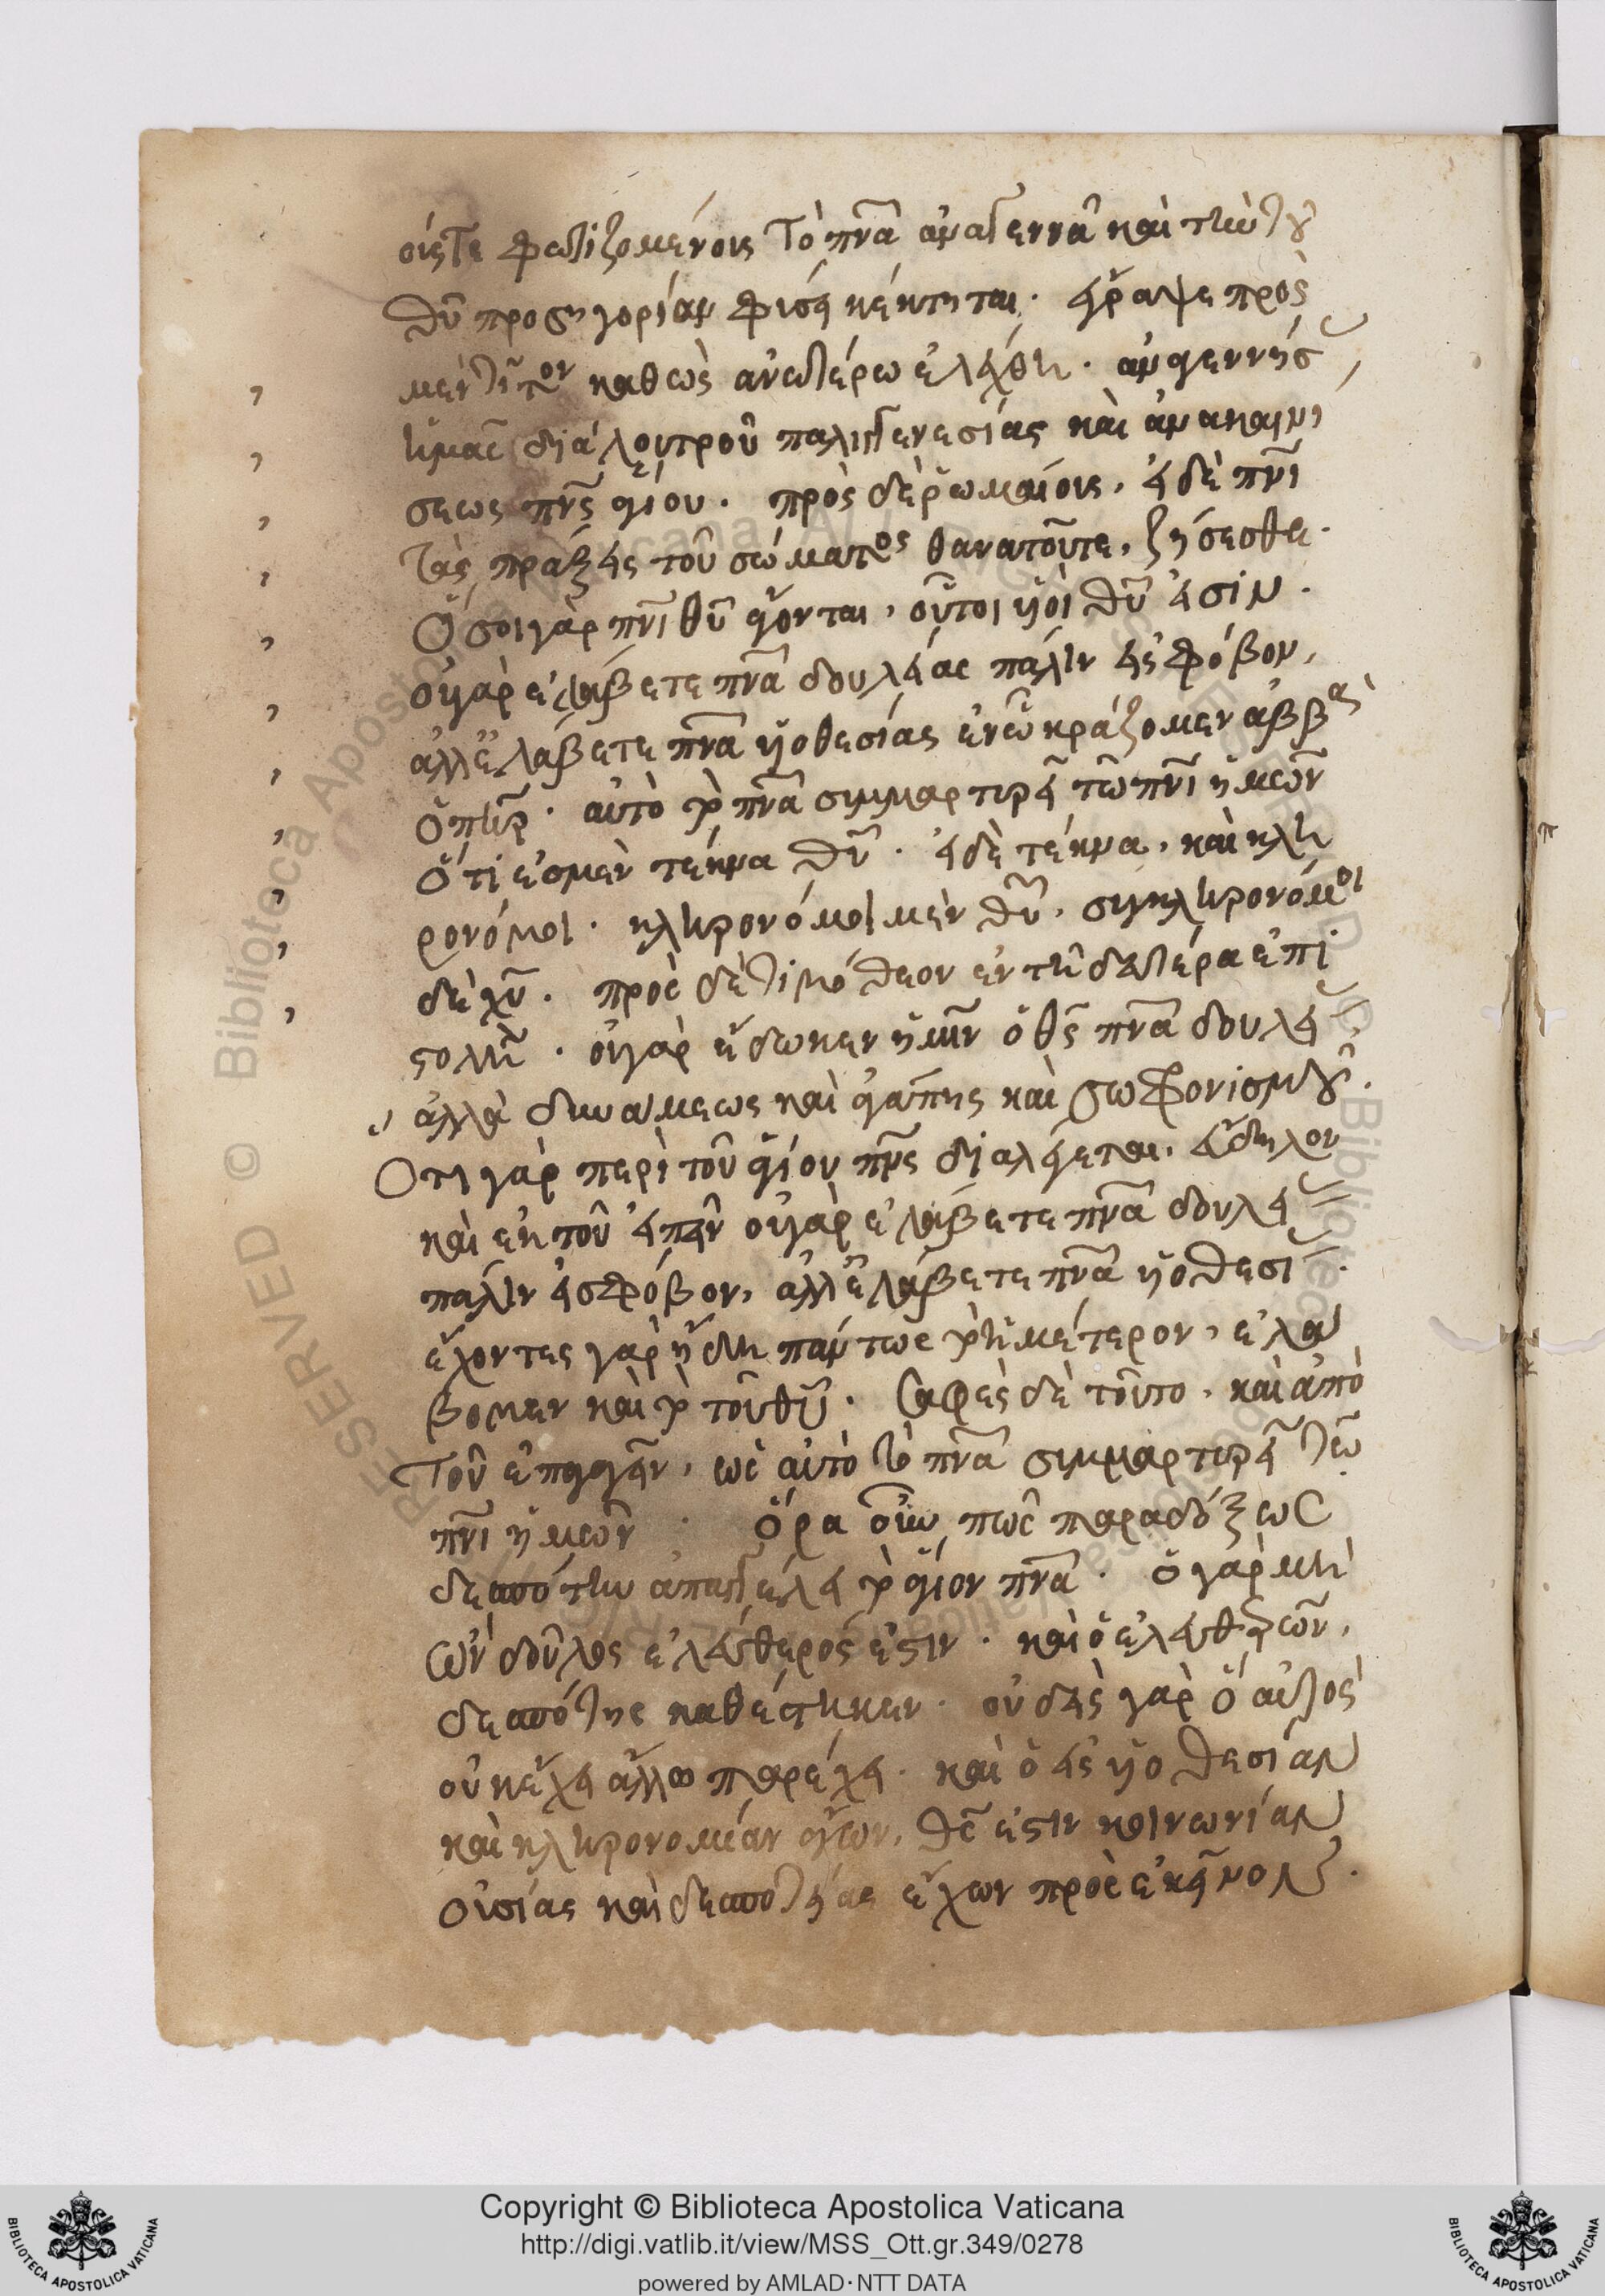 οἷς τε φωτιζομένοις τὸ πνα ἀναγεννᾶ καὶ τὴν τοῦ
θυ προσηγορίαν φύσει κέκτηται· ἔγραψε πρὸς
μὲν τίτον καθὼς ἀνωτέρω ἐλέχθη· ἀνγεννήσ
ἡμᾶς διὰ λουτροῦ παλιγγενεσίας καὶ ἀνακαινι
σεως πνς ἁγίου. πρὸς δὲ ῥωμαίοις, εἰ δὲ πνι
τὰς πράξεις τοῦ σώματος θανατοῦτε, ζήσεσθε·
Ὅσοι γὰρ πνι θυ ἄγονται, οὗτοι υἱοὶ θυ εἰσὶν.
οὐ γὰρ ἐλάβετε πνα δουλείας πάλιν εἰς φόβον,
ἀλλ' ἐλάβετε πνα υἱοθεσίας ἐν ᾧ κράζομεν ἀββα
ὁ πηρ· αὐτὸ τὸ πνα συμμαρτυρεῖ τῶ πνι ἡμῶν
ὅτι ἐσμὲν τέκνα θυ· εἰ δὲ τέκνα, καὶ κλη
ρονόμοι· κληρονόμοι μὲν θυ, συγκληρονόμοι
δὲ χυ. πρὸς δὲ τιμόθεον ἐν τῆ δευτέρα ἐπι
στολῆ· οὐ γὰρ ἔδωκεν ἡμῖν ὁ θς πνα δουλεί
ἀλλὰ δυνάμεως καὶ ἀγάπης καὶ σωφρονισμοῦ.
Ὅτι γὰρ περὶ τοῦ ἁγίου πνς διαλέγεται, εὔδηλον
καὶ ἐκ τοῦ εἰπεῖν οὐ γὰρ ἐλάβετε πνα δουλεί
πάλιν εἰς φόβον, ἀλλ' ἐλάβετε πνα υἱοθεσί
ἔχοντες γὰρ ἤδη πάντως τὸ ἡμέτερον, ἐλά
βομεν καὶ τὸ τοῦ θυ· Σαφὲς δὲ τοῦτο, καὶ ἀπὸ
τοῦ ἐπαγαγεῖν, ὡς αὐτὸ τὸ πνα συμμαρτυρεῖ τῶ
πνι ἡμῶν· ὅρα οὖν πῶς παραδόξως
δεσπότην ἀπαγγέλει τὸ ἅγιον πνα· ὁ γὰρ μὴ
ὢν δοῦλος ἐλεύθερός ἐστιν· καὶ ὁ ἐλεύθερος ὢν,
δεσπότης καθέστηκεν· οὐδεὶς γὰρ ὃ αὐτὸς
οὐκ ἔχει ἄλλω παρέχει· καὶ ὁ εἰς υἱοθεσίαν
καὶ κληρονομίαν ἄγων, θς ἐστιν κοινωνίαν
οὐσίας καὶ δεσποτείας ἔχων πρὸς ἐκεῖνον.
Copyright © Biblioteca Apostolica Vaticana
http://digi.vatlib.it/view/MSS_Ott.gr.349/0278
powered by AMLAD·NTT DATA